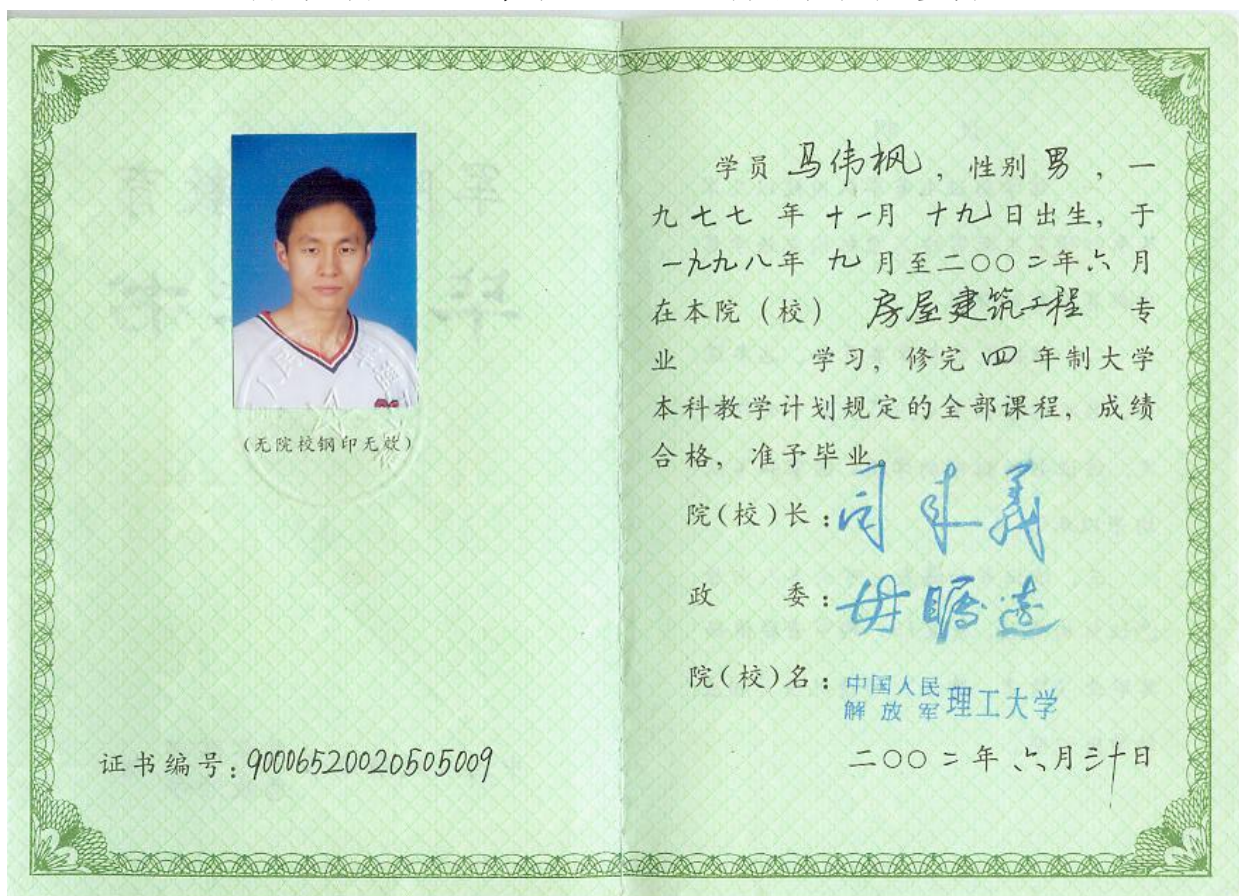 （无院校钢印无效）
证书编号：90006520020505009
学员 马伟枫，性别 男，一
九七七 年 十一月 十九日出生，于
一九九八年 九 月至二〇〇二年六 月
在本院（校） 房屋建筑工程 专
业 学习，修完 四 年制大学
本科教学计划规定的全部课程，成绩
合格，准予毕业。
院（校）长：
政 委：
院（校）名：中国人民解放军理工大学
二〇〇二年 六月三十日